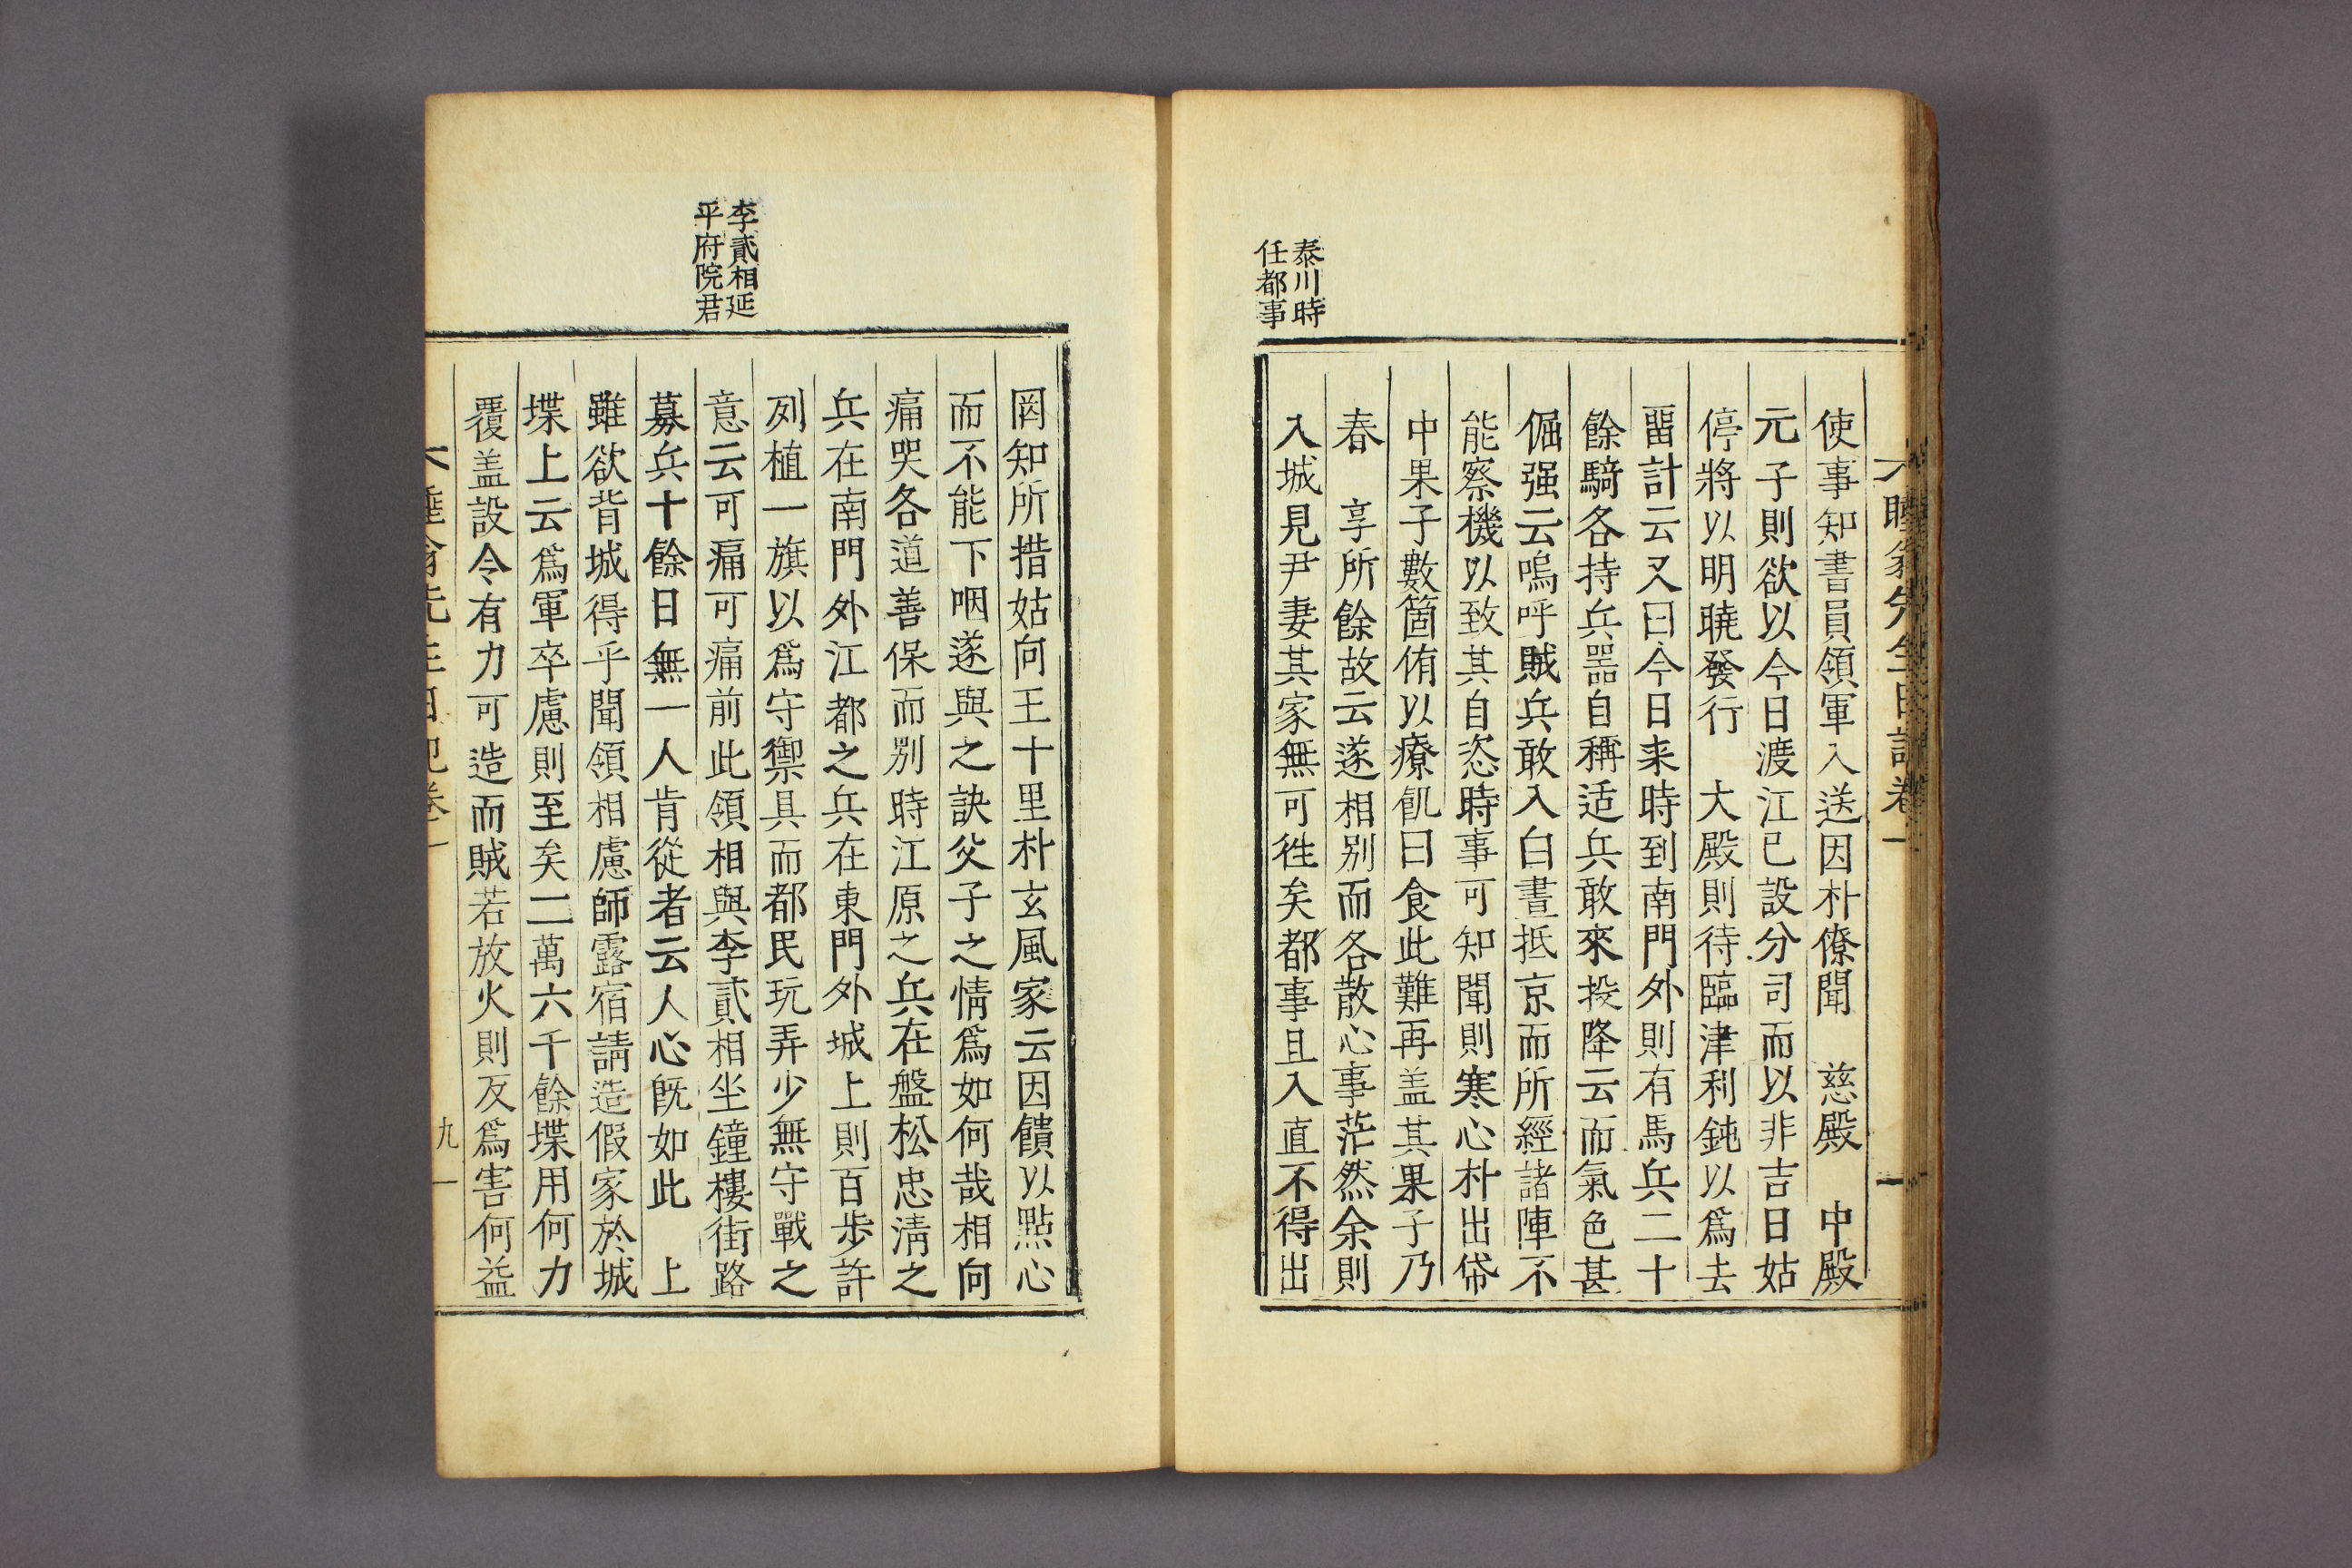 泰川時
任都事
使事知書員領軍入送因朴僚聞　慈殿　中殿
元子則欲以今日渡江已設分司而以非吉日姑
停將以明曉發行　大殿則待臨津利鈍以爲去
留計云又曰今日来時到南門外則有馬兵二十
餘騎各持兵噐自稱适兵敢來投降云而氣色甚
倔强云嗚呼賊兵敢入白晝抵京而所經諸陣不
能察機以致其自恣時事可知聞則寒心朴出帒
中果子數箇侑以療飢曰食此難再盖其果子乃
春　享所餘故云遂相別而各散心事茫然余則
入城見尹妻其家無可徃矣都事且入直不得出
李貳相延
平府院君
罔知所措姑向王十里朴玄風家云因饋以點心
而不能下咽遂與之訣父子之情爲如何哉相向
痛哭各道善保而別時江原之兵在盤松忠淸之
兵在南門外江都之兵在東門外城上則百步許
列植一旗以爲守禦具而都民玩弄少無守戰之
意云可痛可痛前此領相與李貳相坐鐘樓街路
募兵十餘日無一人肯從者云人心旣如此　上
雖欲背城得乎聞領相慮師露宿請造假家於城
堞上云爲軍卒慮則至矣二萬六千餘堞用何力
覆盖設令有力可造而賊若放火則反爲害何益
九